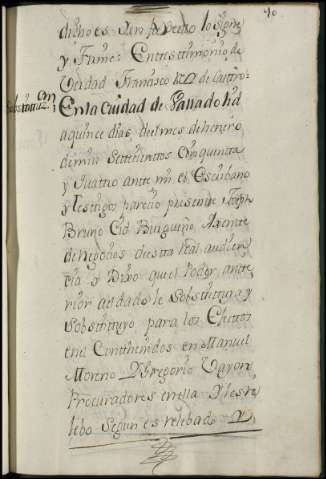 40
dicho es San Pedro lo signe
y firme = En testimonio de
Verdad Francisco
Substituz.on
En la Ciudad de Valladolid
a quince dias del mes de henero
de mill Settecientos Cinquenta
y Quattro ante mi el Escribano
y testigos parecio presente Joseph
Bruno Cid Burgueño Ajente
de negocios de esta Real audien
cia y Dixo que el Poder ante
rior al dado le Sobstittuya y
Sobstittuyo para los Efecttos
en el Conthenidos en Manuel
Moreno y Gregorio
Procuradores en ella y les re
lebo Segun es relebado